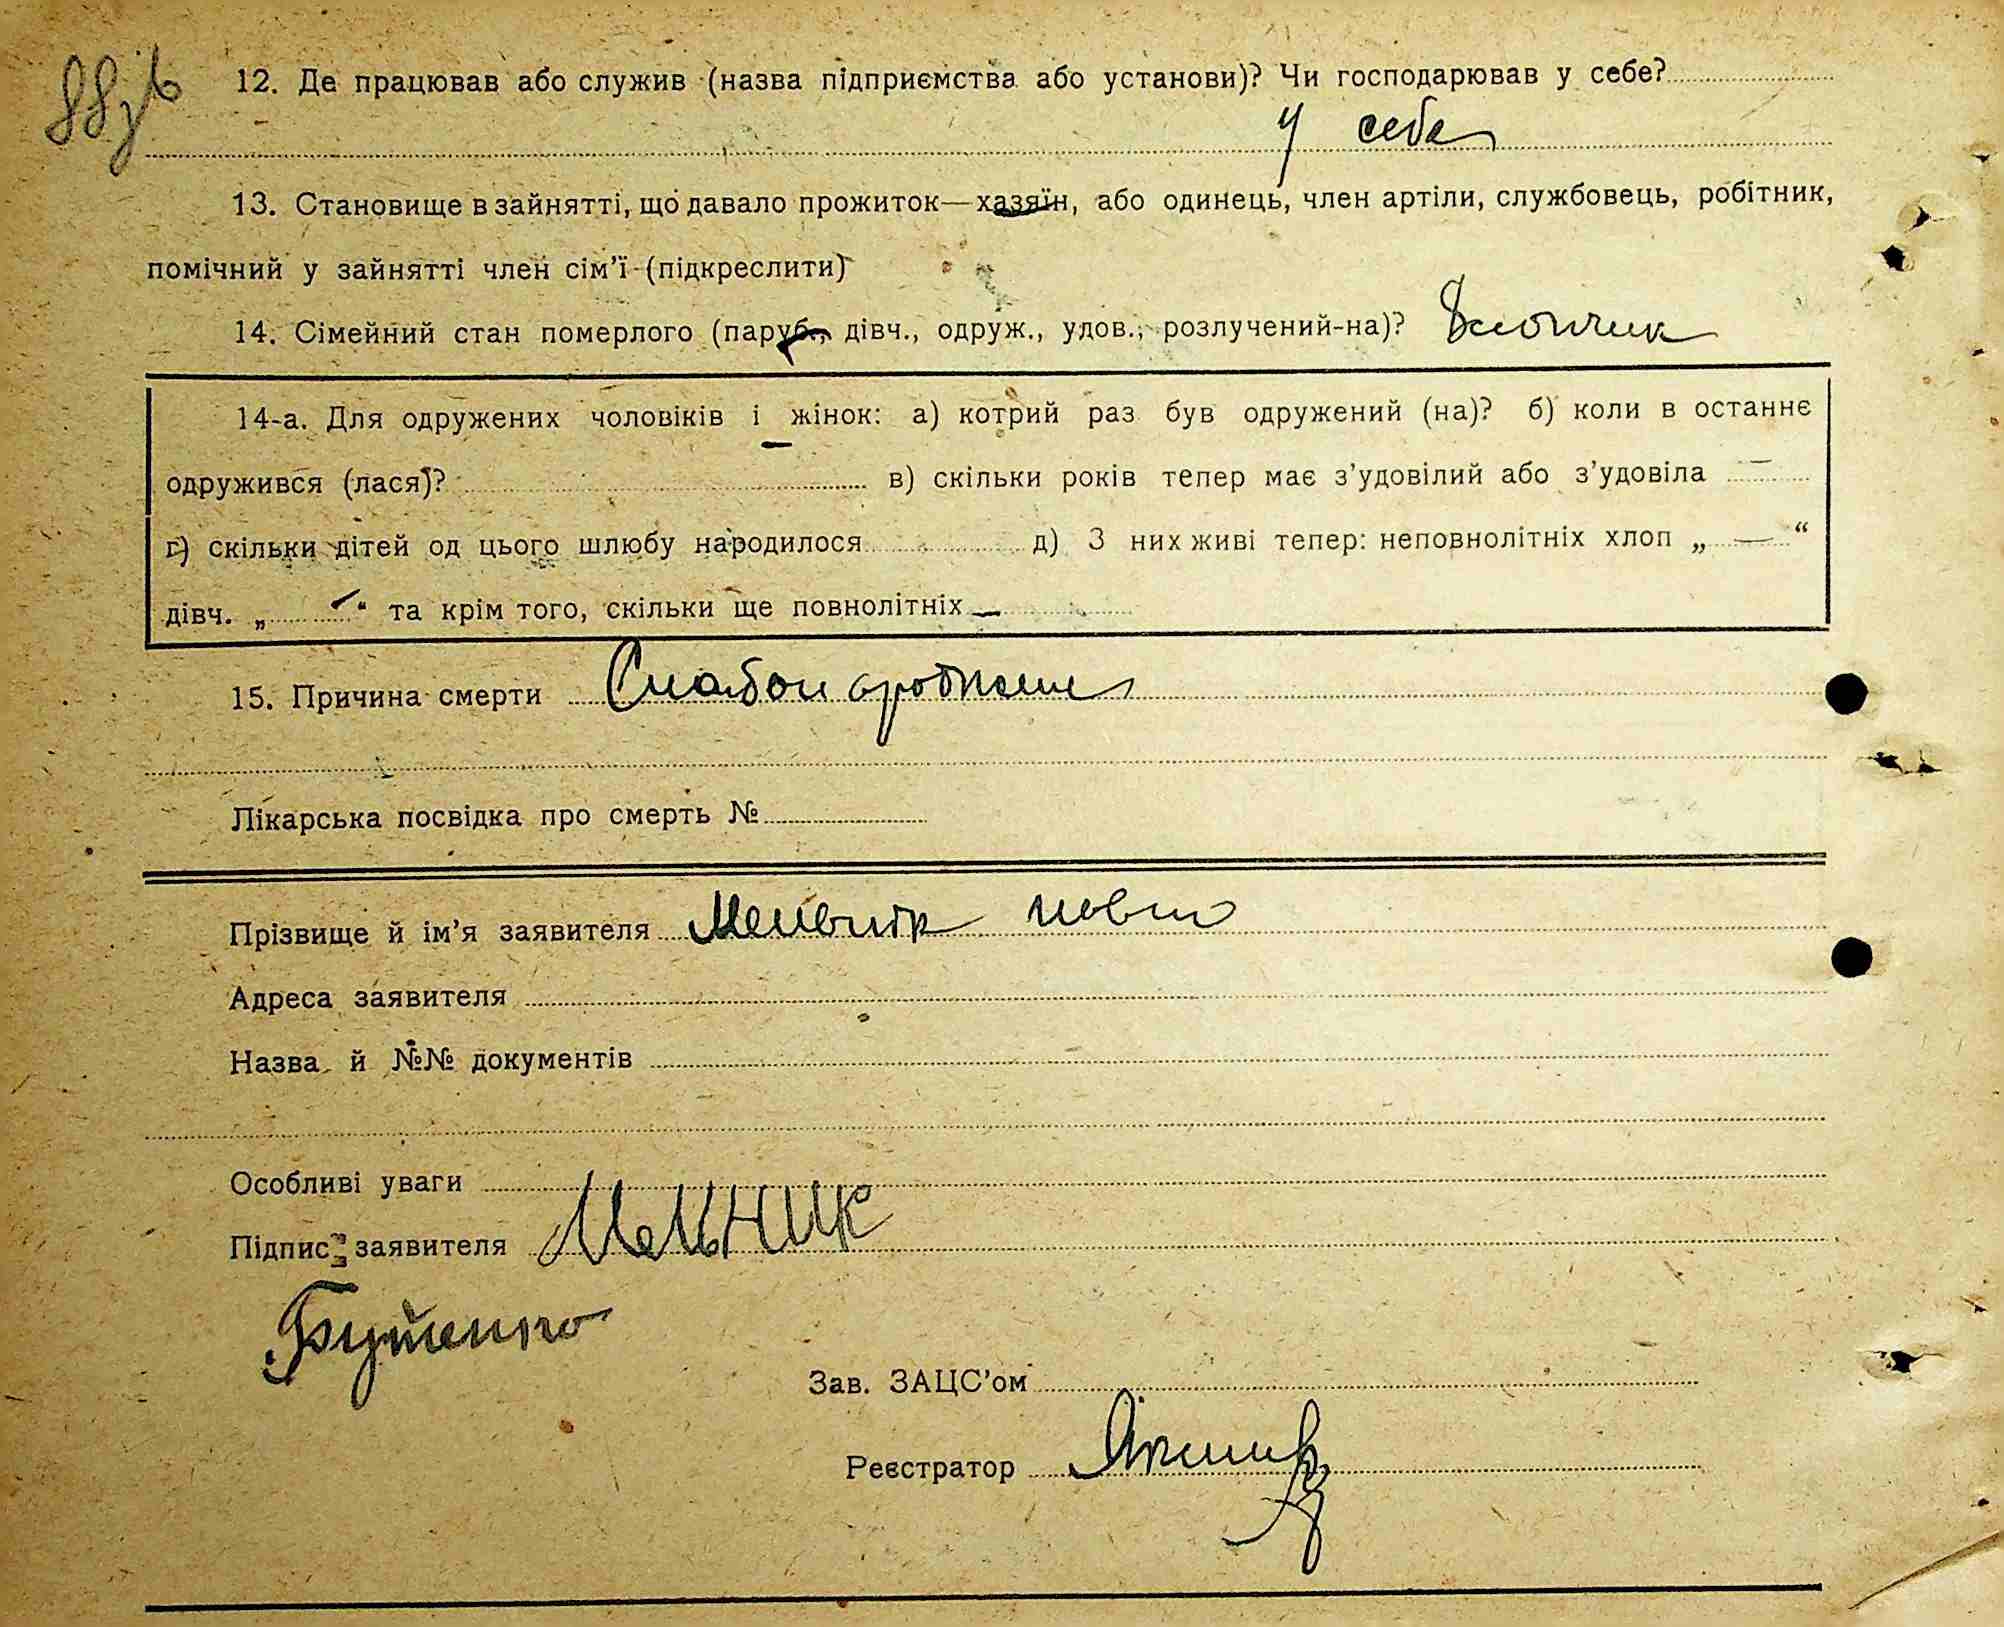 12. Де працював або служив (назва підприємства або установи)? Чи господарював у себе?
у себе
13. Становище в зайнятті, що давало прожиток—хазяїн, або одинець, член артіли, службовець, робітник,
помічний у зайнятті член сім’ї (підкреслити)
14. Сімейний стан померлого (паруб., дівч., одруж., удов., розлучений-на)? Хлопчик
14-а. Для одружених чоловіків і жінок: а) котрий раз був одружений (на)? б) коли в останнє
одружився (лася)? в) скільки років тепер має з’удовілий або з’удовіла —
г) скільки дітей од цього шлюбу народилося д) З них живі тепер: неповнолітніх хлоп „ — “
дівч. „ “ та крім того, скільки ще повнолітніх —
15. Причина смерти
Лікарська посвідка про смерть №
Прізвище й ім’я заявителя Мельник
Адреса заявителя
Назва й №№ документів
Особливі уваги
Підпис заявителя Мельник
Зав. ЗАЦС’ом
Реєстратор